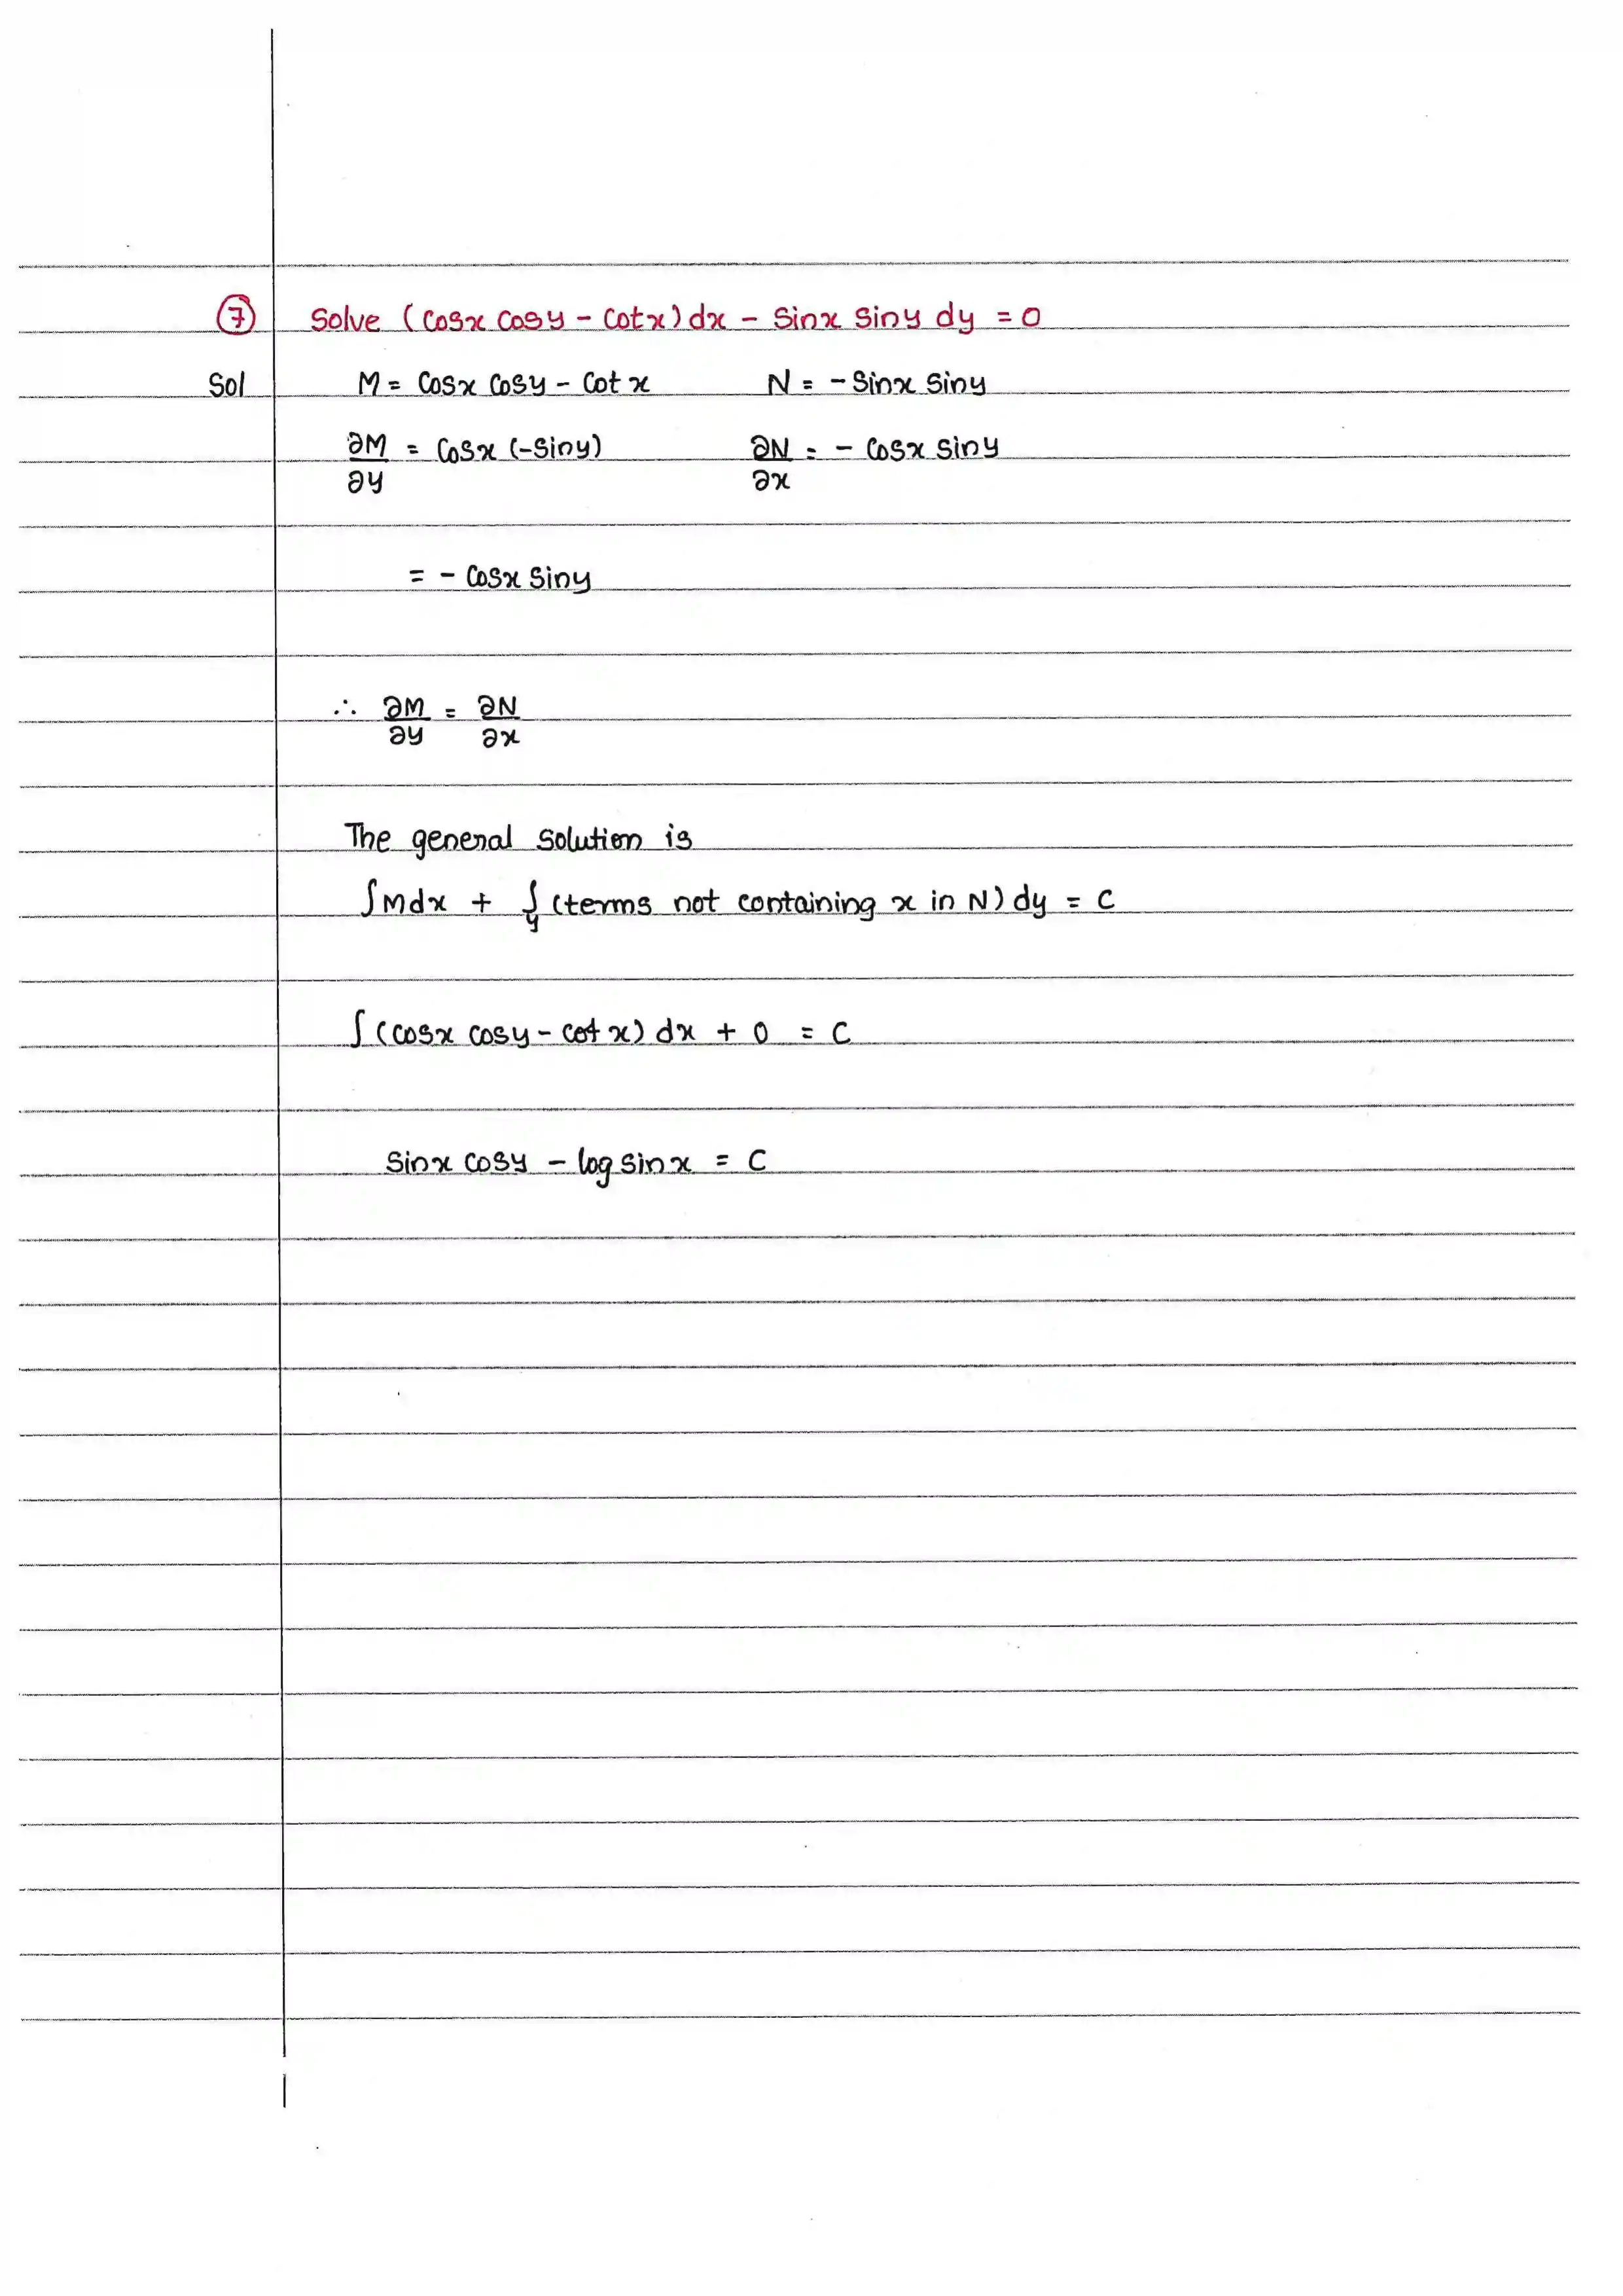 ⑦ Solve (Cosx Cosy - Cotx) dx - Sinx Siny dy = 0
Sol M = Cosx Cosy - Cot x N = - Sinx Siny
∂M/∂y = Cosx (-Siny) ∂N/∂x = - Cosx Siny
= - Cosx Siny
∴ ∂M/∂y = ∂N/∂x
The general Solution is
∫Mdx + ∫y (terms not containing x in N) dy = C
∫(Cosx Cosy - Cot x) dx + 0 = C
Sinx Cosy - log sin x = C